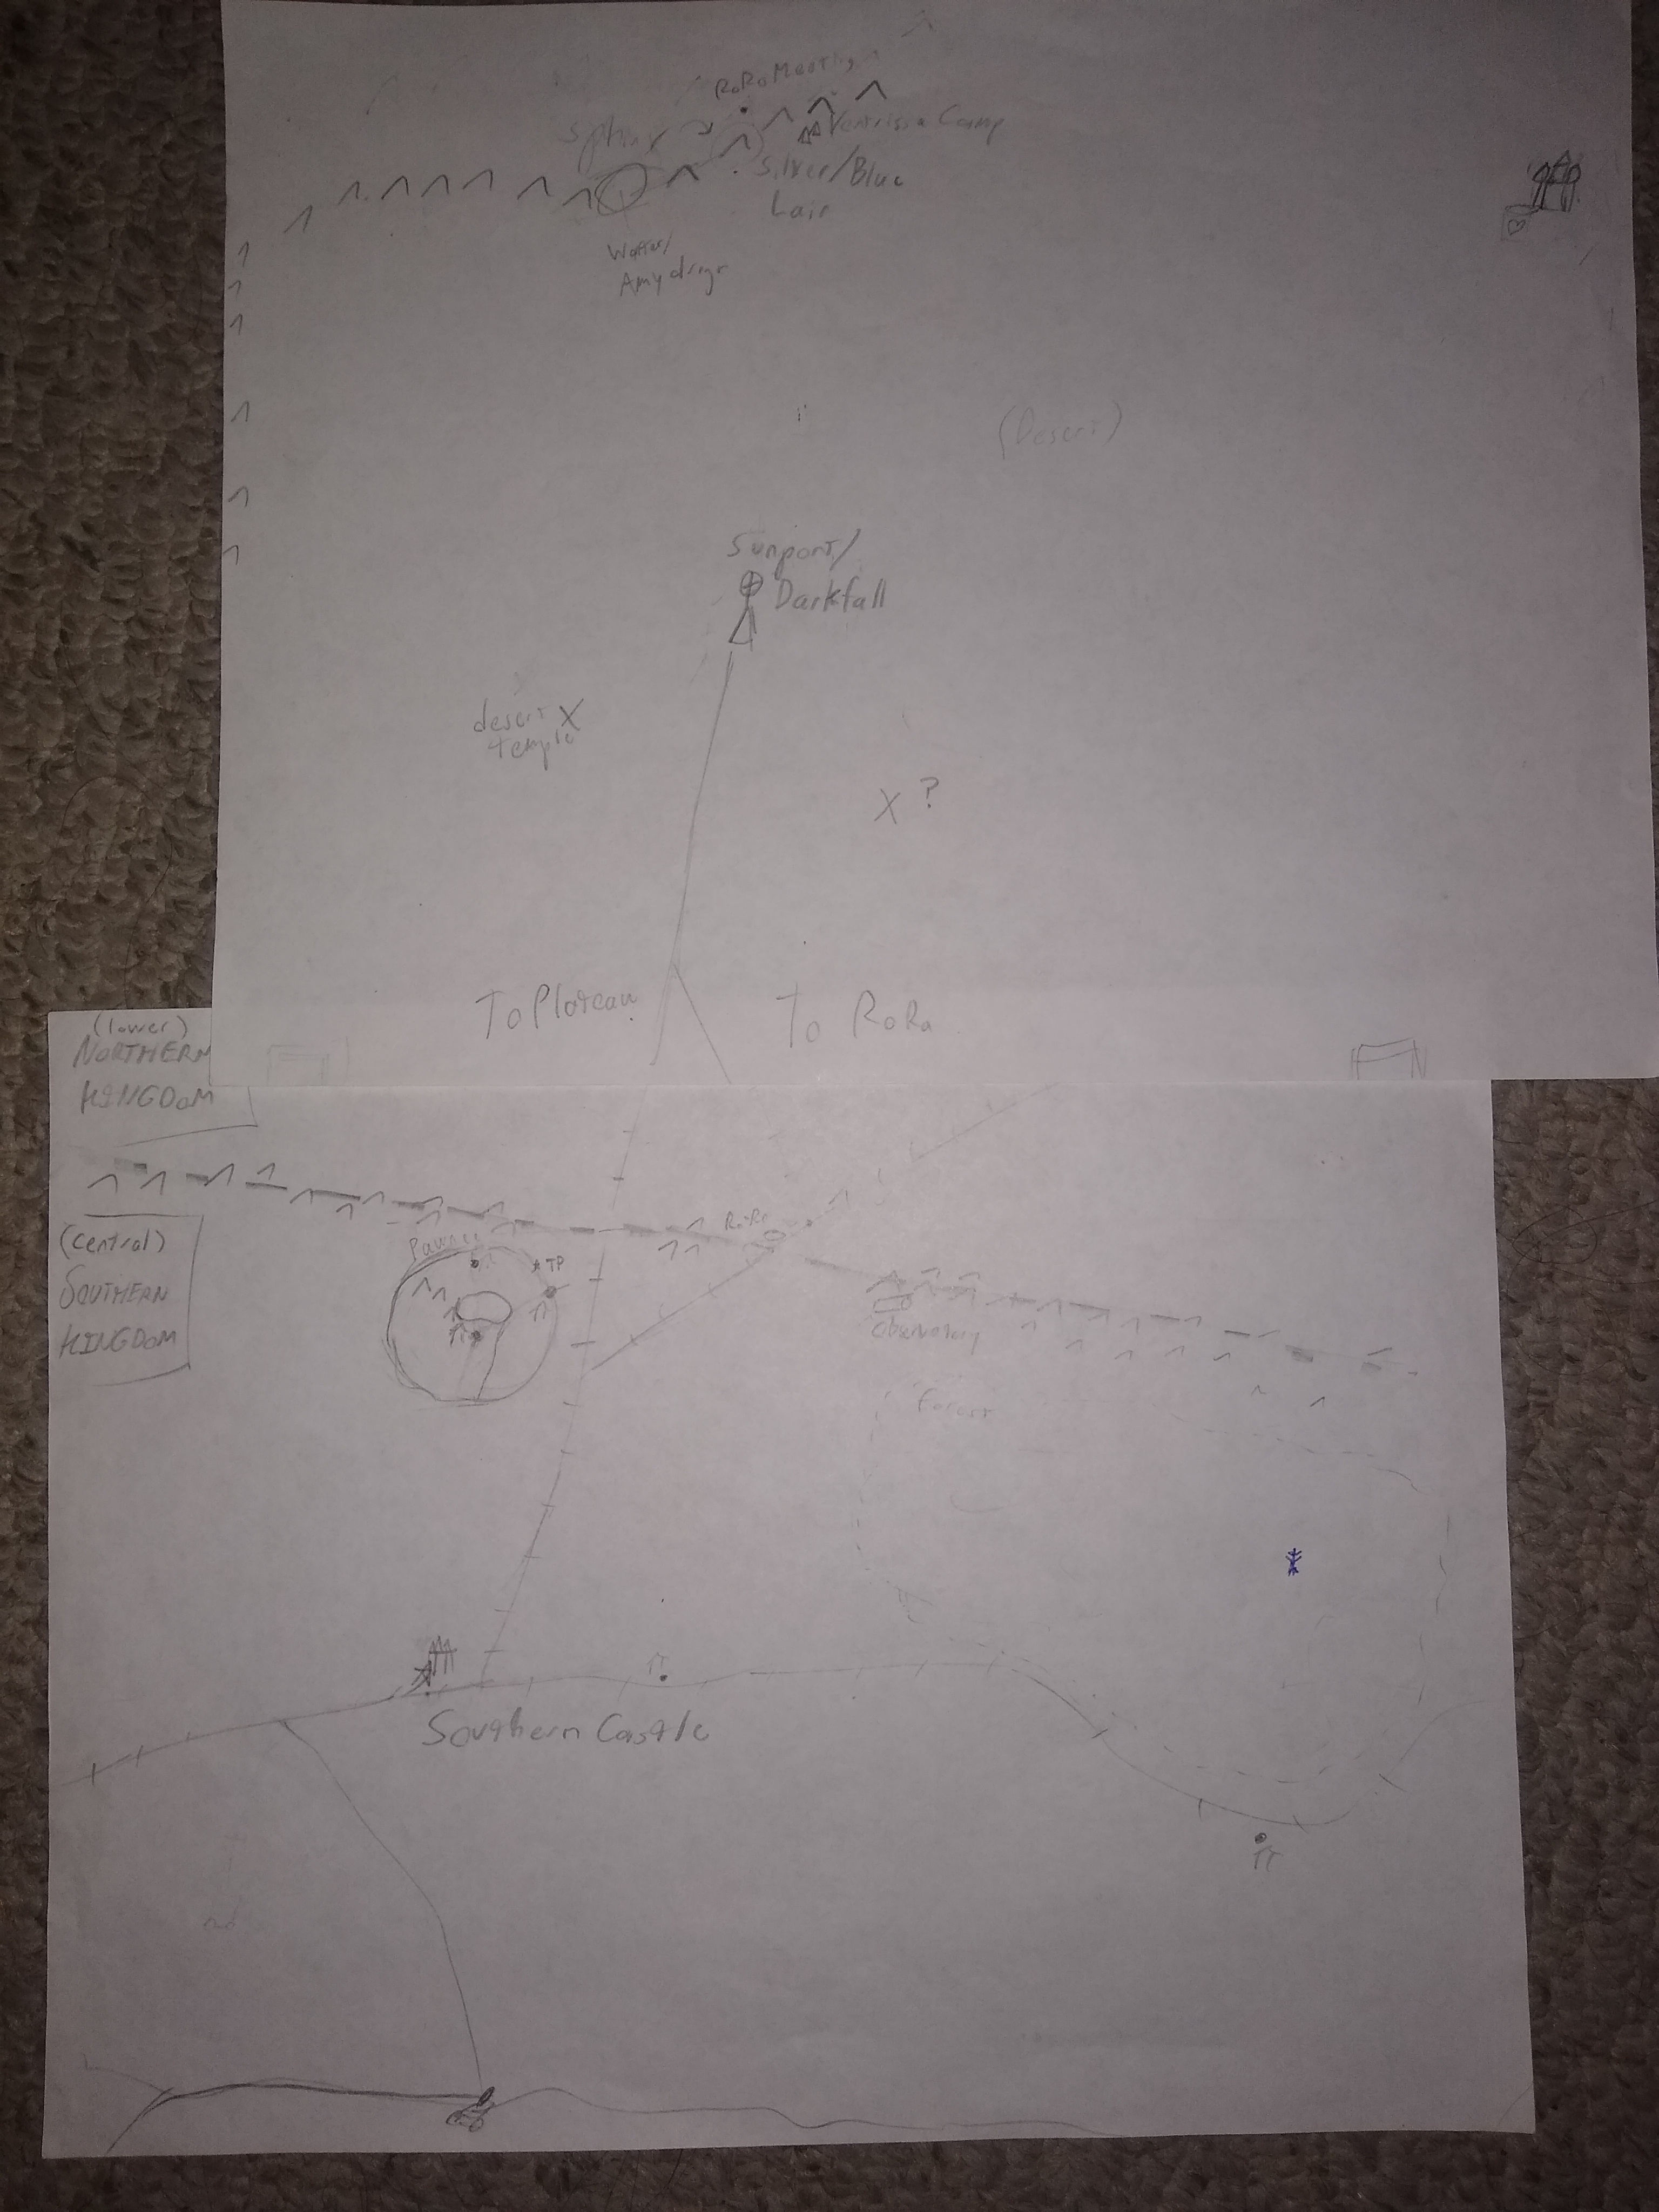 RoRa Meeting
Sphinx
Ventrissa Camp
Silver/Blue
Lair
Water/
(Desert)
Sunport/
Darkfall
desert X
temple
X ?
To Plateau
To RoRa
(lower)
NORTHERN
KINGDOM
(Central)
SOUTHERN
KINGDOM
Pawnee
TP
RoRa
Observatory
Forest
Southern Castle